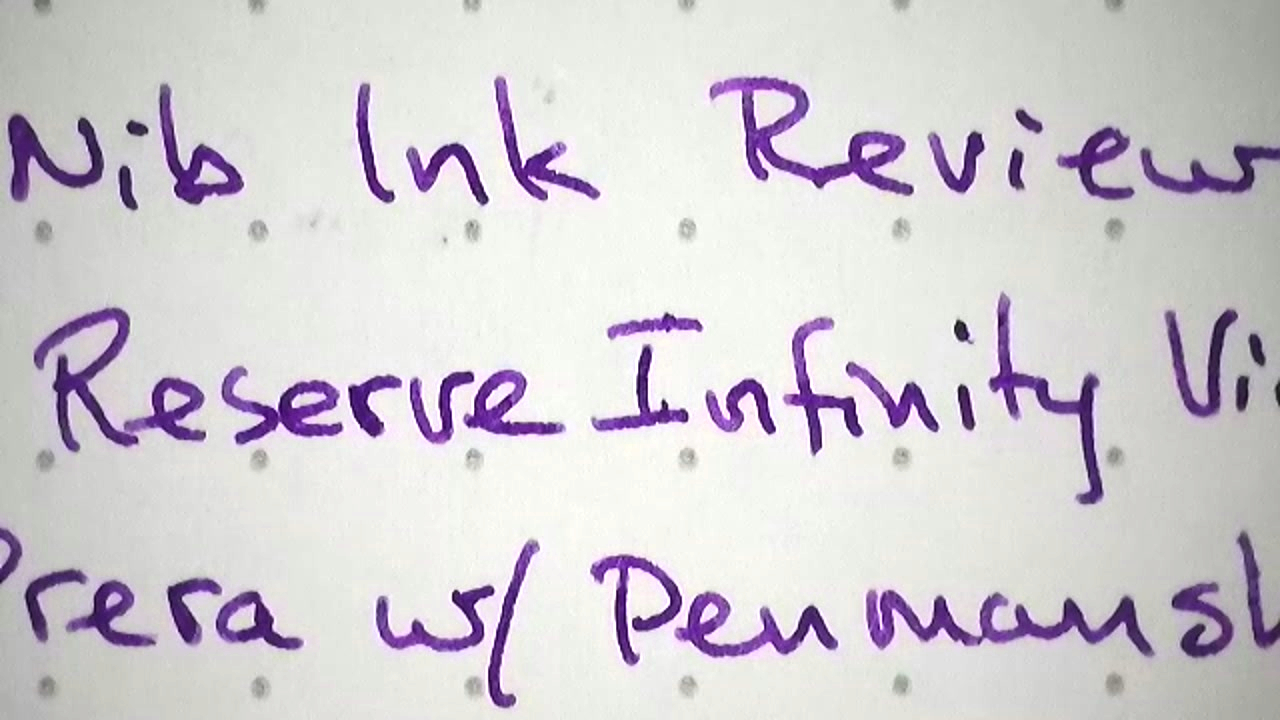 Nib Ink Review
Reserve Infinity Vi
Prera w/ Penmansh